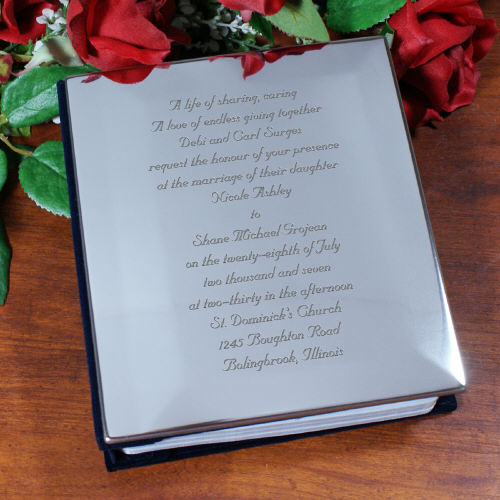 A life of sharing, caring
A love of endless giving together
Debi and Carl Surges
request the honour of your presence
at the marriage of their daughter
Nicole Ashley
to
Shane Michael Grojean
on the twenty-eighth of July
two thousand and seven
at two-thirty in the afternoon
St. Dominick's Church
1245 Boughton Road
Bolingbrook, Illinois